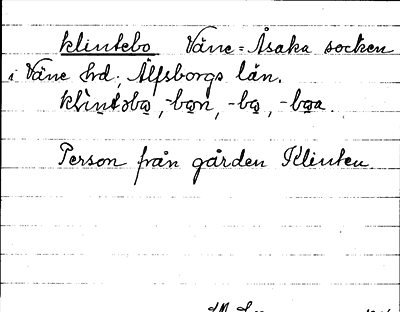 klintebo Väne-Åsaka socken
i Väne hd; Älfsborgs län.
klintəbo, -bon, -bo, -boa.
Person från gården Klinten.